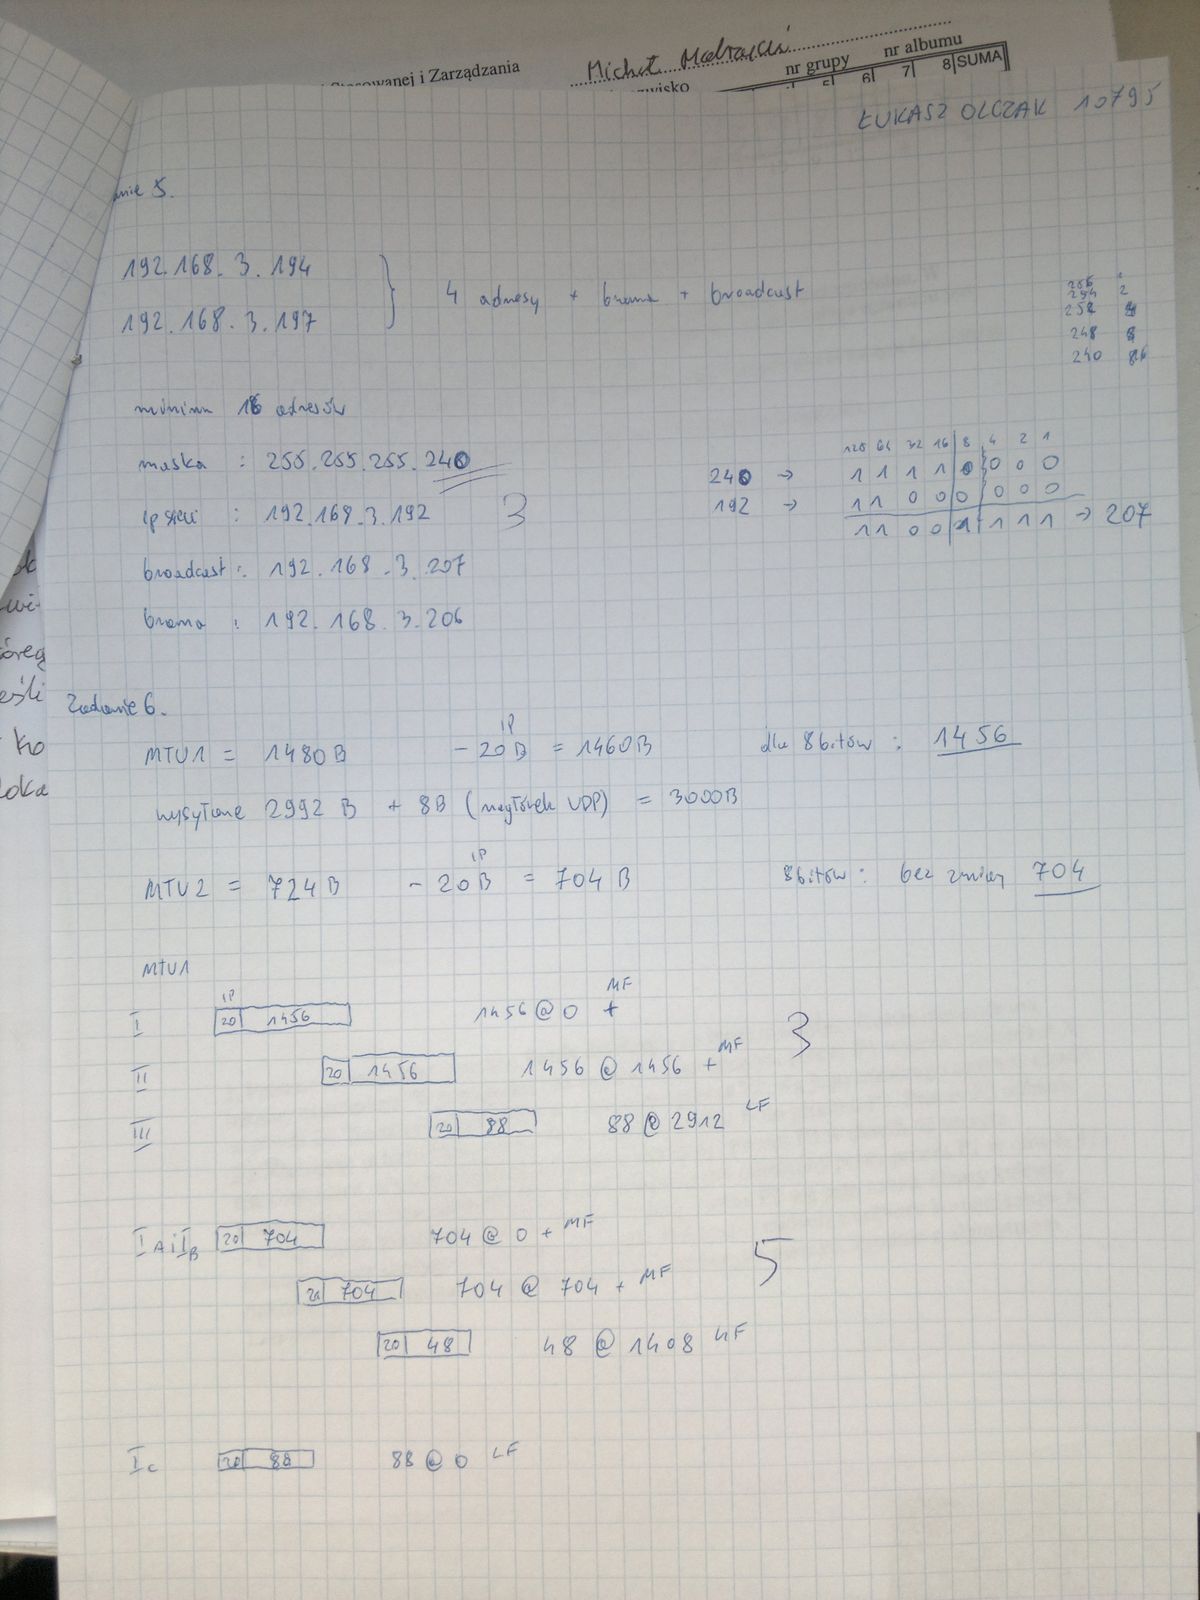 Stosowanej i Zarządzania
Michał
nr grupy nr albumu
5 6 7 8 SUMA
ŁUKASZ OLCZAK 10795
anie 5.
192.168.3.194
192.168.3.197
4 adresy + brama + broadcast
254 2
252 4
248 8
240 16
minimum 16 adresów
maska : 255.255.255.240
ip sieci : 192.168.3.192 3
broadcast : 192.168.3.207
brama : 192.168.3.206
128 64 32 16 8 4 2 1
240 → 1 1 1 1 0 0 0 0
192 → 1 1 0 0 0 0 0 0
1 1 0 0 1 1 1 1 → 207
Zadanie 6.
MTU1 = 1480B - 20B IP = 1460B dla 8bitów : 1456
wysyłane 2992 B + 8B (nagłówek UDP) = 3000B
MTU2 = 724B - 20B IP = 704B 8bitów : bez zmian 704
MTU1
IP
I 20 1456 1456 @ 0 + MF
II 20 1456 1456 @ 1456 + MF 3
III 20 88 88 @ 2912 LF
IA i IB 20 704 704 @ 0 + MF
20 704 704 @ 704 + MF 5
20 48 48 @ 1408 MF
Ic 20 88 88 @ 0 LF